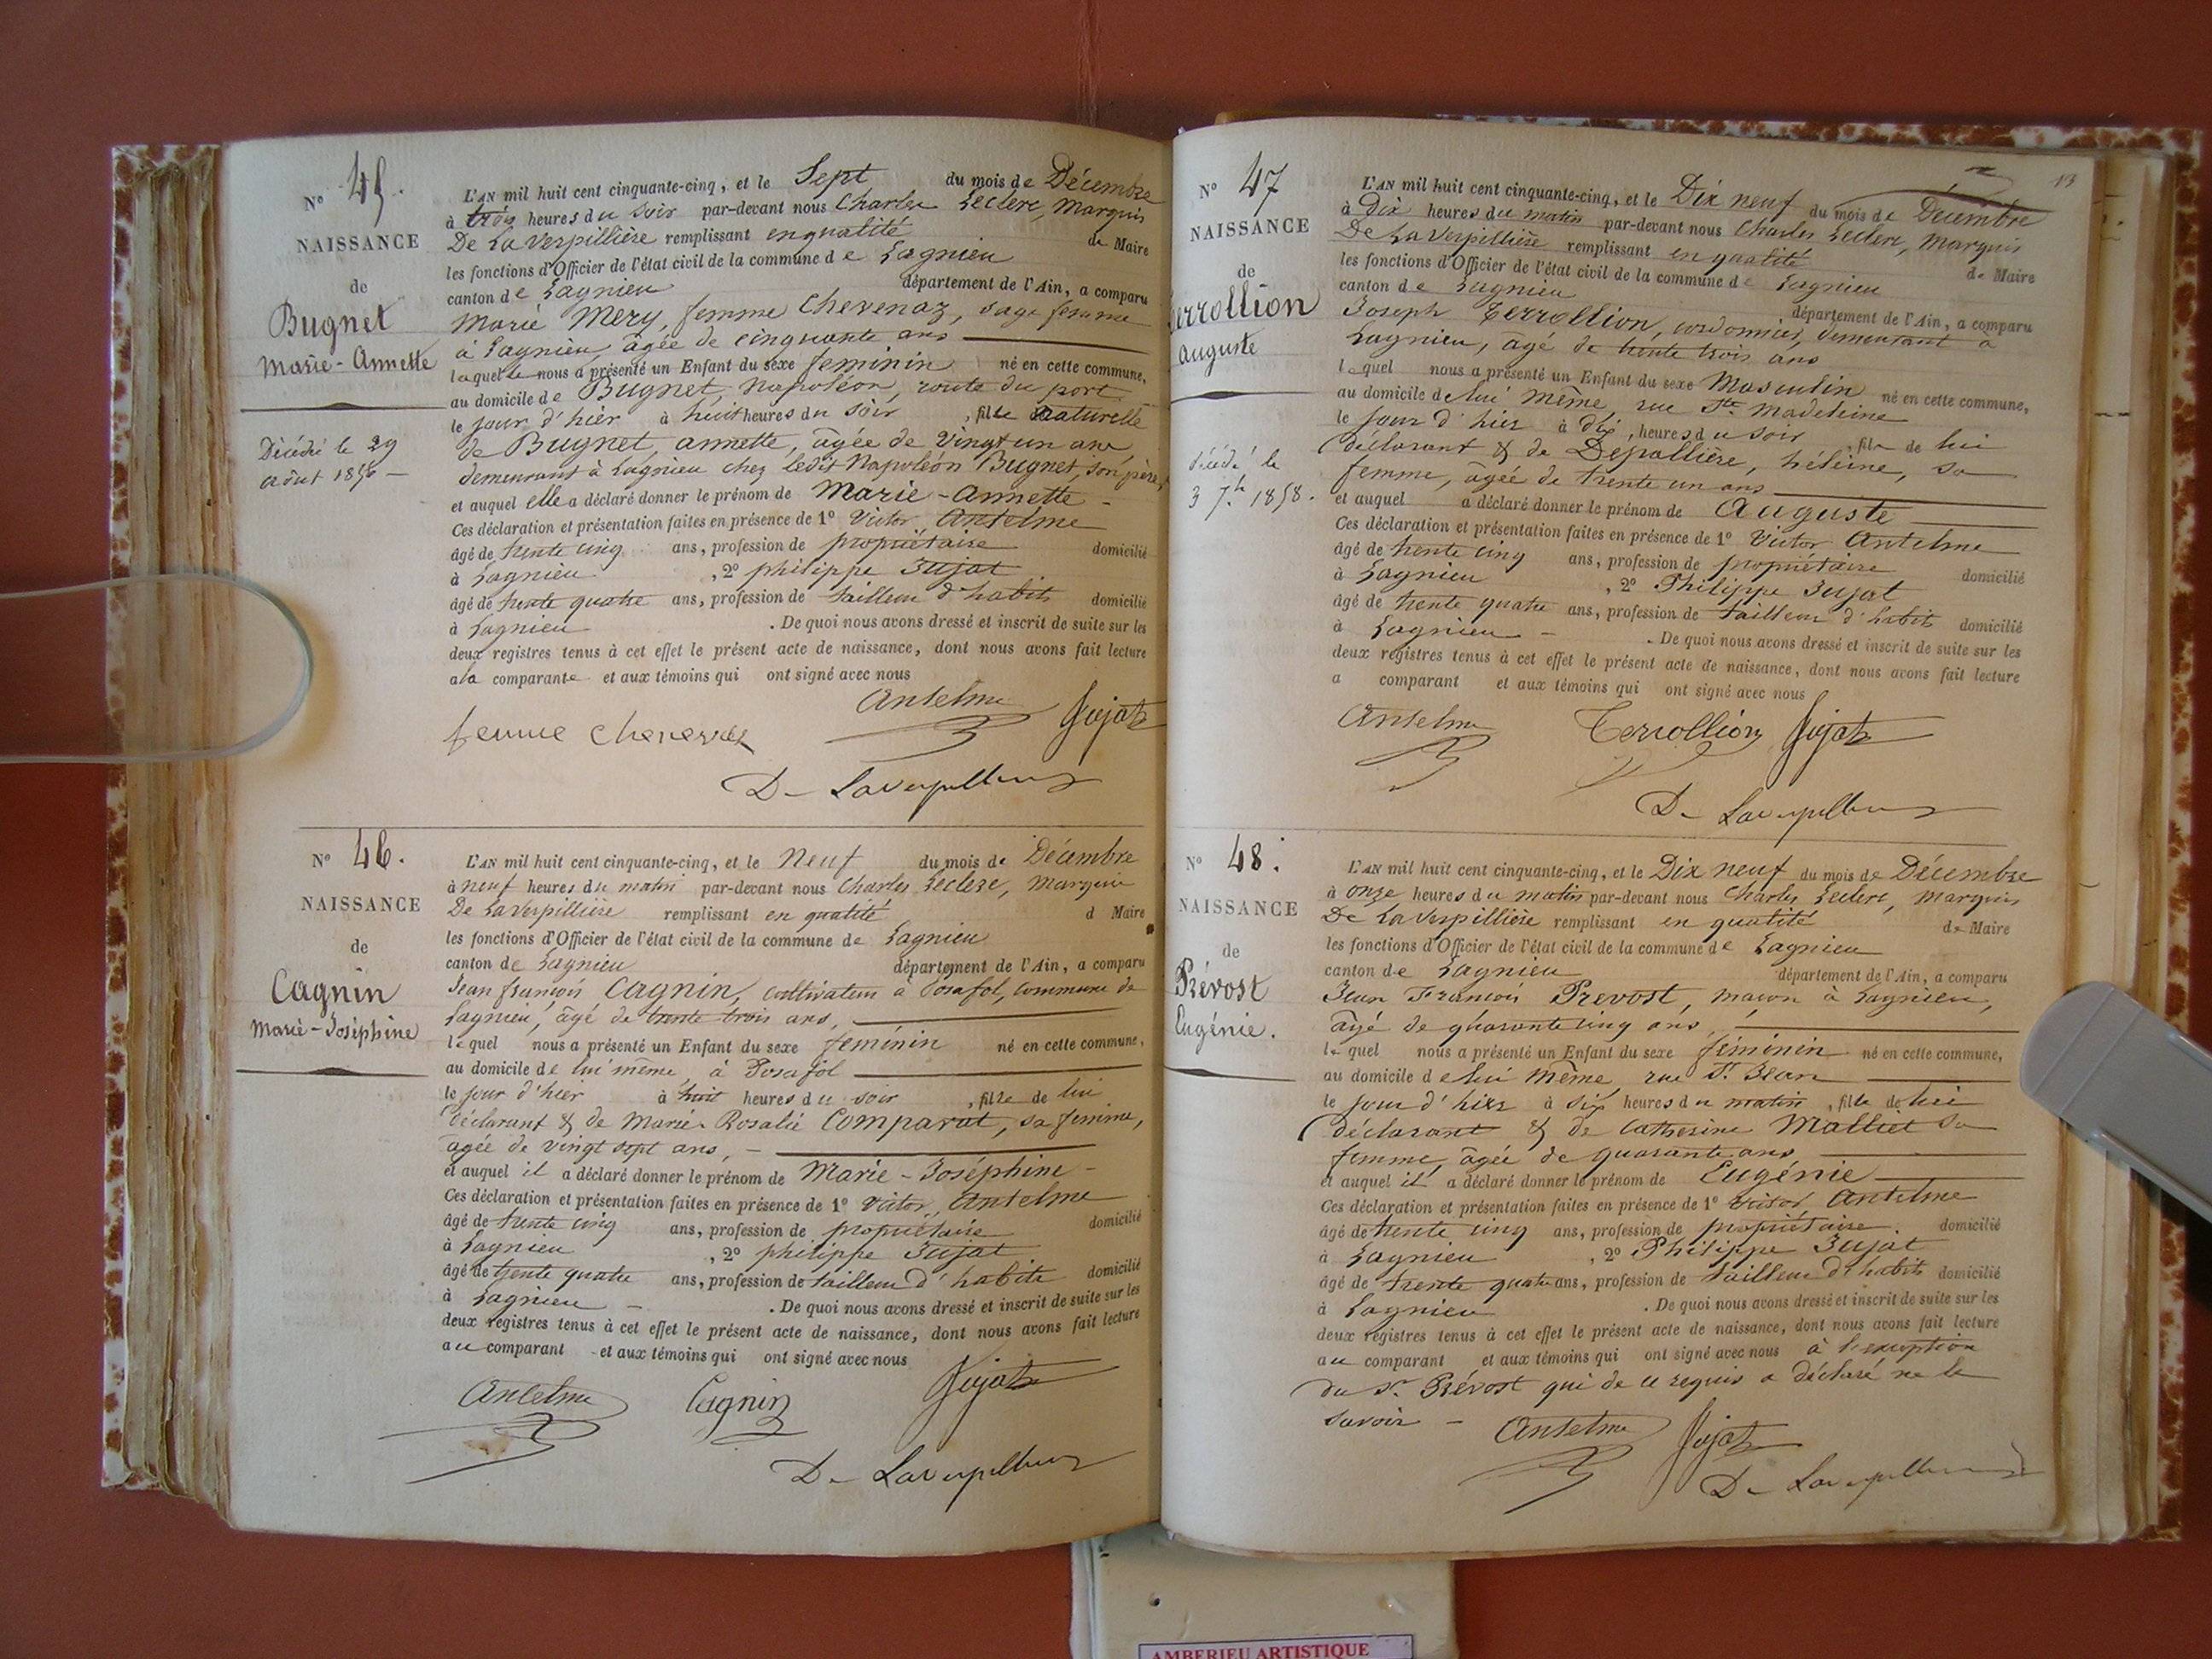 N° 45.
NAISSANCE
de
Bugnet
Marie-Annette
Décédée le 29
août 1856 —
L'AN mil huit cent cinquante-cinq, et le Sept du mois de Décembre
à trois heures du soir par-devant nous Charles Leclerc, Marquis
De LaVerpillière remplissant en qualité de Maire
les fonctions d'Officier de l'état civil de la commune de Lagnieu
canton de Lagnieu département de l'Ain, a comparu
Marie Mery, femme Chevenaz, sage femme
à Lagnieu, âgée de cinquante ans
laquelle nous a présenté un Enfant du sexe feminin né en cette commune,
au domicile de Bugnet, Napoléon, route du port
le jour d'hier à huit heures du soir, fille naturelle
de Bugnet, annette, âgée de vingt un ans
demeurant à Lagnieu chez ledit Napoléon Bugnet, son père,
et auquel elle a déclaré donner le prénom de Marie-Annette -
Ces déclaration et présentation faites en présence de 1° Victor Antelme
âgé de trente cinq ans, profession de propriétaire domicilié
à Lagnieu, 2° philippe Jujat
âgé de trente quatre ans, profession de tailleur d'habits domicilié
à Lagnieu. De quoi nous avons dressé et inscrit de suite sur les
deux registres tenus à cet effet le présent acte de naissance, dont nous avons fait lecture
a la comparante et aux témoins qui ont signé avec nous
Antelme Jujat
femme
De Laverpilliere
N° 46.
NAISSANCE
de
Cagnin
Marie-Joséphine
L'AN mil huit cent cinquante-cinq, et le Neuf du mois de Décembre
à neuf heures du matin par-devant nous Charles Leclerc, Marquis
De LaVerpillière remplissant en qualité d Maire
les fonctions d'Officier de l'état civil de la commune de Lagnieu
canton de Lagnieu département de l'Ain, a comparu
Jean françois Cagnin, cultivateur à Posafol, commune de
Lagnieu, âgé de trente trois ans,
lequel nous a présenté un Enfant du sexe féminin né en cette commune,
au domicile de lui même, à Posafol
le jour d'hier à huit heures du soir, fille de lui
déclarant & de Marie Rosalie Comparat, sa femme,
agée de vingt sept ans, -
et auquel il a déclaré donner le prénom de Marie-Joséphine -
Ces déclaration et présentation faites en présence de 1° Victor Antelme
âgé de trente cinq ans, profession de propriétaire domicilié
à Lagnieu, 2° philippe Jujat
âgé de trente quatre ans, profession de tailleur d'habits domicilié
à Lagnieu -. De quoi nous avons dressé et inscrit de suite sur les
deux registres tenus à cet effet le présent acte de naissance, dont nous avons fait lecture
au comparant - et aux témoins qui ont signé avec nous
Antelme Cagnin Jujat
De Laverpilliere
13
N° 47
NAISSANCE
de
Terrollion
Auguste
décédé le
3 7bre 1858.
L'AN mil huit cent cinquante-cinq, et le Dix neuf du mois de Décembre
à Dix heures du matin par-devant nous Charles Leclerc, Marquis
De LaVerpillière remplissant en qualité de Maire
les fonctions d'Officier de l'état civil de la commune de Lagnieu
canton de Lagnieu département de l'Ain, a comparu
Joseph Terrollion, cordonnier, demeurant à
Lagnieu, âgé de trente trois ans
lequel nous a présenté un Enfant du sexe Masculin né en cette commune,
au domicile de lui même, rue Ste Madeleine
le jour d'hier à dix, heures du soir, fils de lui
déclarant & de Depallière, hélène, sa
femme, âgée de trente un ans
et auquel a déclaré donner le prénom de Auguste
Ces déclaration et présentation faites en présence de 1° Victor Antelme
âgé de trente cinq ans, profession de propriétaire domicilié
à Lagnieu, 2° Philippe Jujat
âgé de trente quatre ans, profession de tailleur d'habits domicilié
à Lagnieu -. De quoi nous avons dressé et inscrit de suite sur les
deux registres tenus à cet effet le présent acte de naissance, dont nous avons fait lecture
a comparant et aux témoins qui ont signé avec nous
Antelme Terrollion Jujat
De Laverpilliere
N° 48.
NAISSANCE
de
Prévost
Eugénie.
L'AN mil huit cent cinquante-cinq, et le Dix neuf du mois de Décembre
à onze heures du matin par-devant nous Charles Leclerc, Marquis
De LaVerpillière remplissant en qualité de Maire
les fonctions d'Officier de l'état civil de la commune de Lagnieu
canton de Lagnieu département de l'Ain, a comparu
Jean François Prevost, maçon à Lagnieu,
âgé de quarante cinq ans,
lequel nous a présenté un Enfant du sexe féminin né en cette commune,
au domicile de lui même, rue St. Jean
le jour d'hier à six heures du matin, fille de lui
déclarant & de Catherine Malliet sa
femme, âgée de quarante ans,
et auquel il a déclaré donner le prénom de Eugénie
Ces déclaration et présentation faites en présence de 1° Victor Antelme
âgé de trente cinq ans, profession de propriétaire. domicilié
à Lagnieu, 2° Philippe Jujat
âgé de trente quatre ans, profession de tailleur d'habits domicilié
à Lagnieu. De quoi nous avons dressé et inscrit de suite sur les
deux registres tenus à cet effet le présent acte de naissance, dont nous avons fait lecture
au comparant et aux témoins qui ont signé avec nous à l'exception
du Sr Prévost qui de ce requis a déclaré ne le
savoir -
Antelme Jujat
De Laverpilliere
AMBERIEU ARTISTIQUE